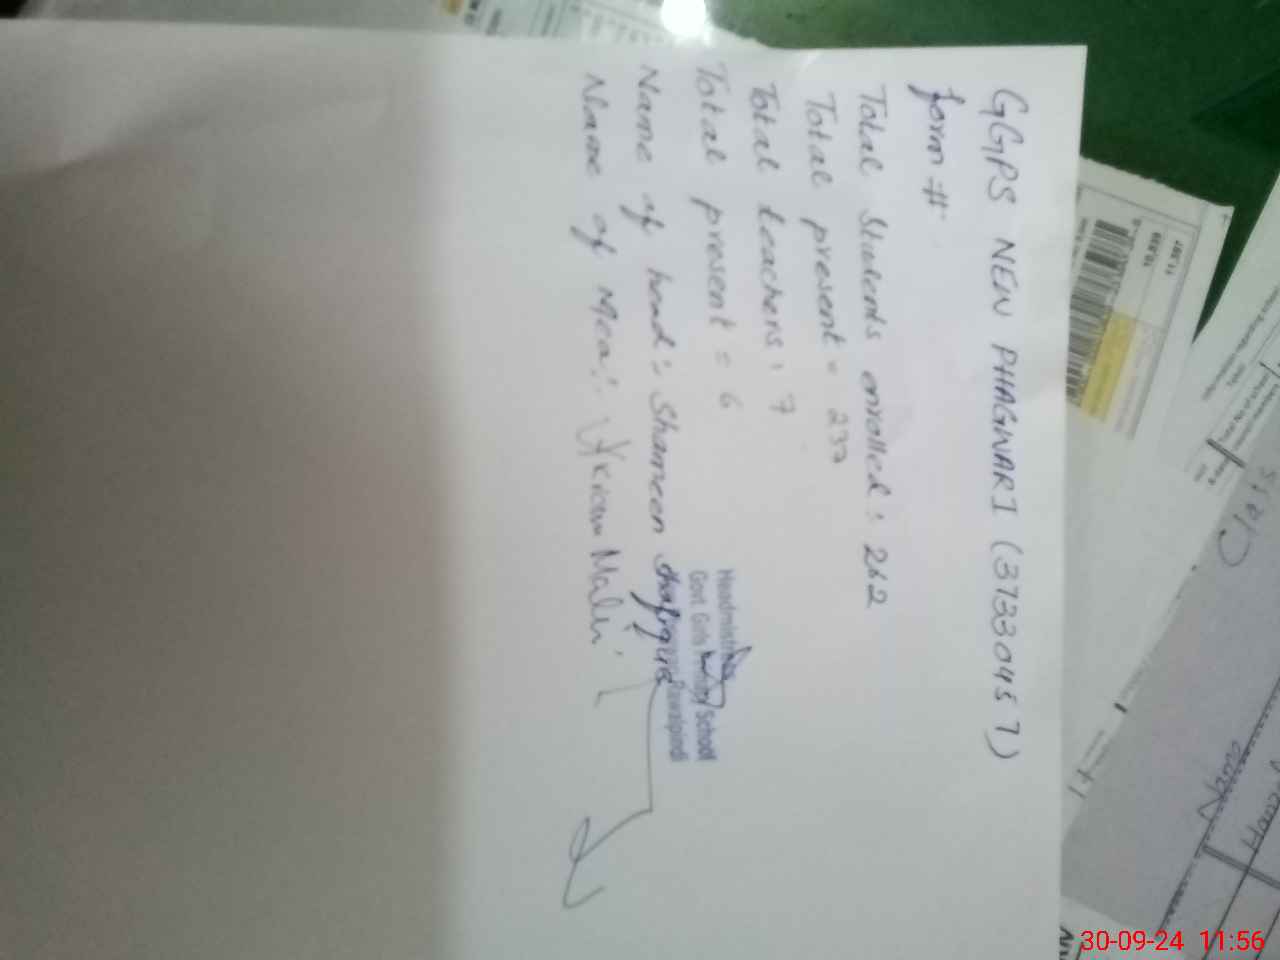 GGPS NEW PHAGWARI (37330457)
form #
Total Students enrolled: 262
Total present = 237
Total teachers: 7
Total present = 6
Name of head: Shameen Shafique
Name of Mea: Malik
Headmistress
Govt. Girls Primary School
Rawalpindi
11,597
10,839
Class
Name
30-09-24 11:56